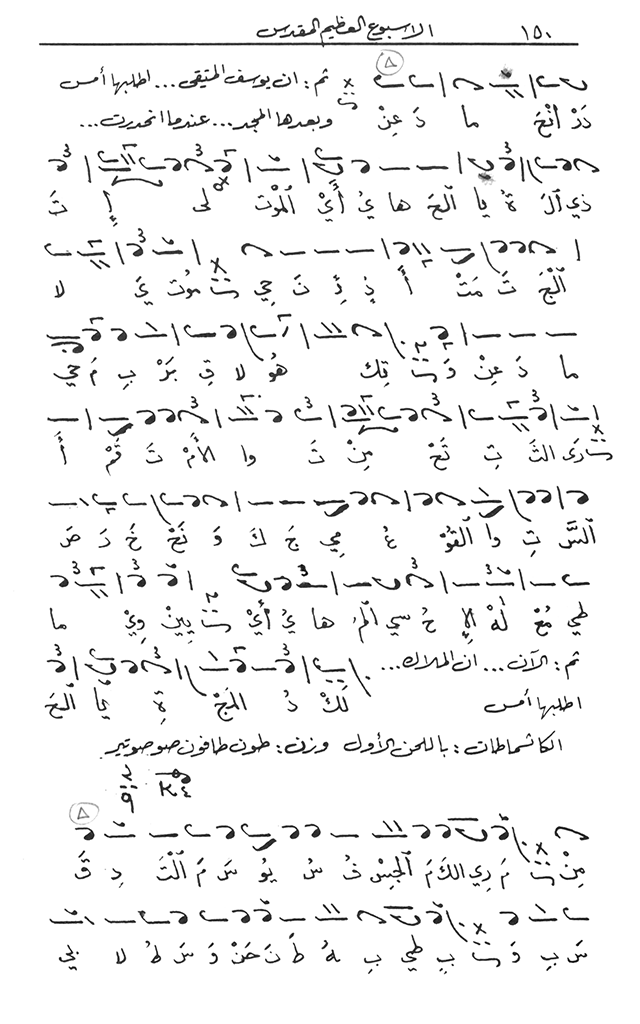 ١٥٠ الاسبوع العظيم المقدس
ثم : ان يوسف المتقي ... اطلبها أمس
دَرْ اَنْحَ ما دَ عِنْ وبعدها المجد ... عندما انحدرت ...
ذي الَ ةُ يا اَلْحَ ها يُ أَيْ اَلْمَوْت لى إِ تَ
اَلْجَ تَ مَتْ أَ ذٍ ئِ نَ حي مُوت يَ لا
ما دَ عِنْ وَ قِك هُو لا قِ بَرْ بِ مَ حي
رَى الثَ تِ تَحْ مِنْ تَ وا الأَمْ تَ قَمْ أَ
السَّ تِ وا اَلقُوْ عُ مي جَ كَ وَ نَحْ خَ رَ صَ
طي مُعْ لهْ الإِ حُ سي المَ ها يُ أَيْ يينْ وِيْ ما
ثم : الآن ... ان الملاك ...
اطلبها أمس لَكْ دُ المَجْ ةِ يا اَلحَ
الكاشماطات : باللحن الأول وزن : طون طافون صوصوتير
مِنْ مَ رِي الكَ مَ الجِسْ فُ سُ يُو سَ مَ اَلْتَ دِ قَ
سَ بِ وَ بٍ طي بِ هُ طَ نَ حَنْ وَ سَ طُ لا في